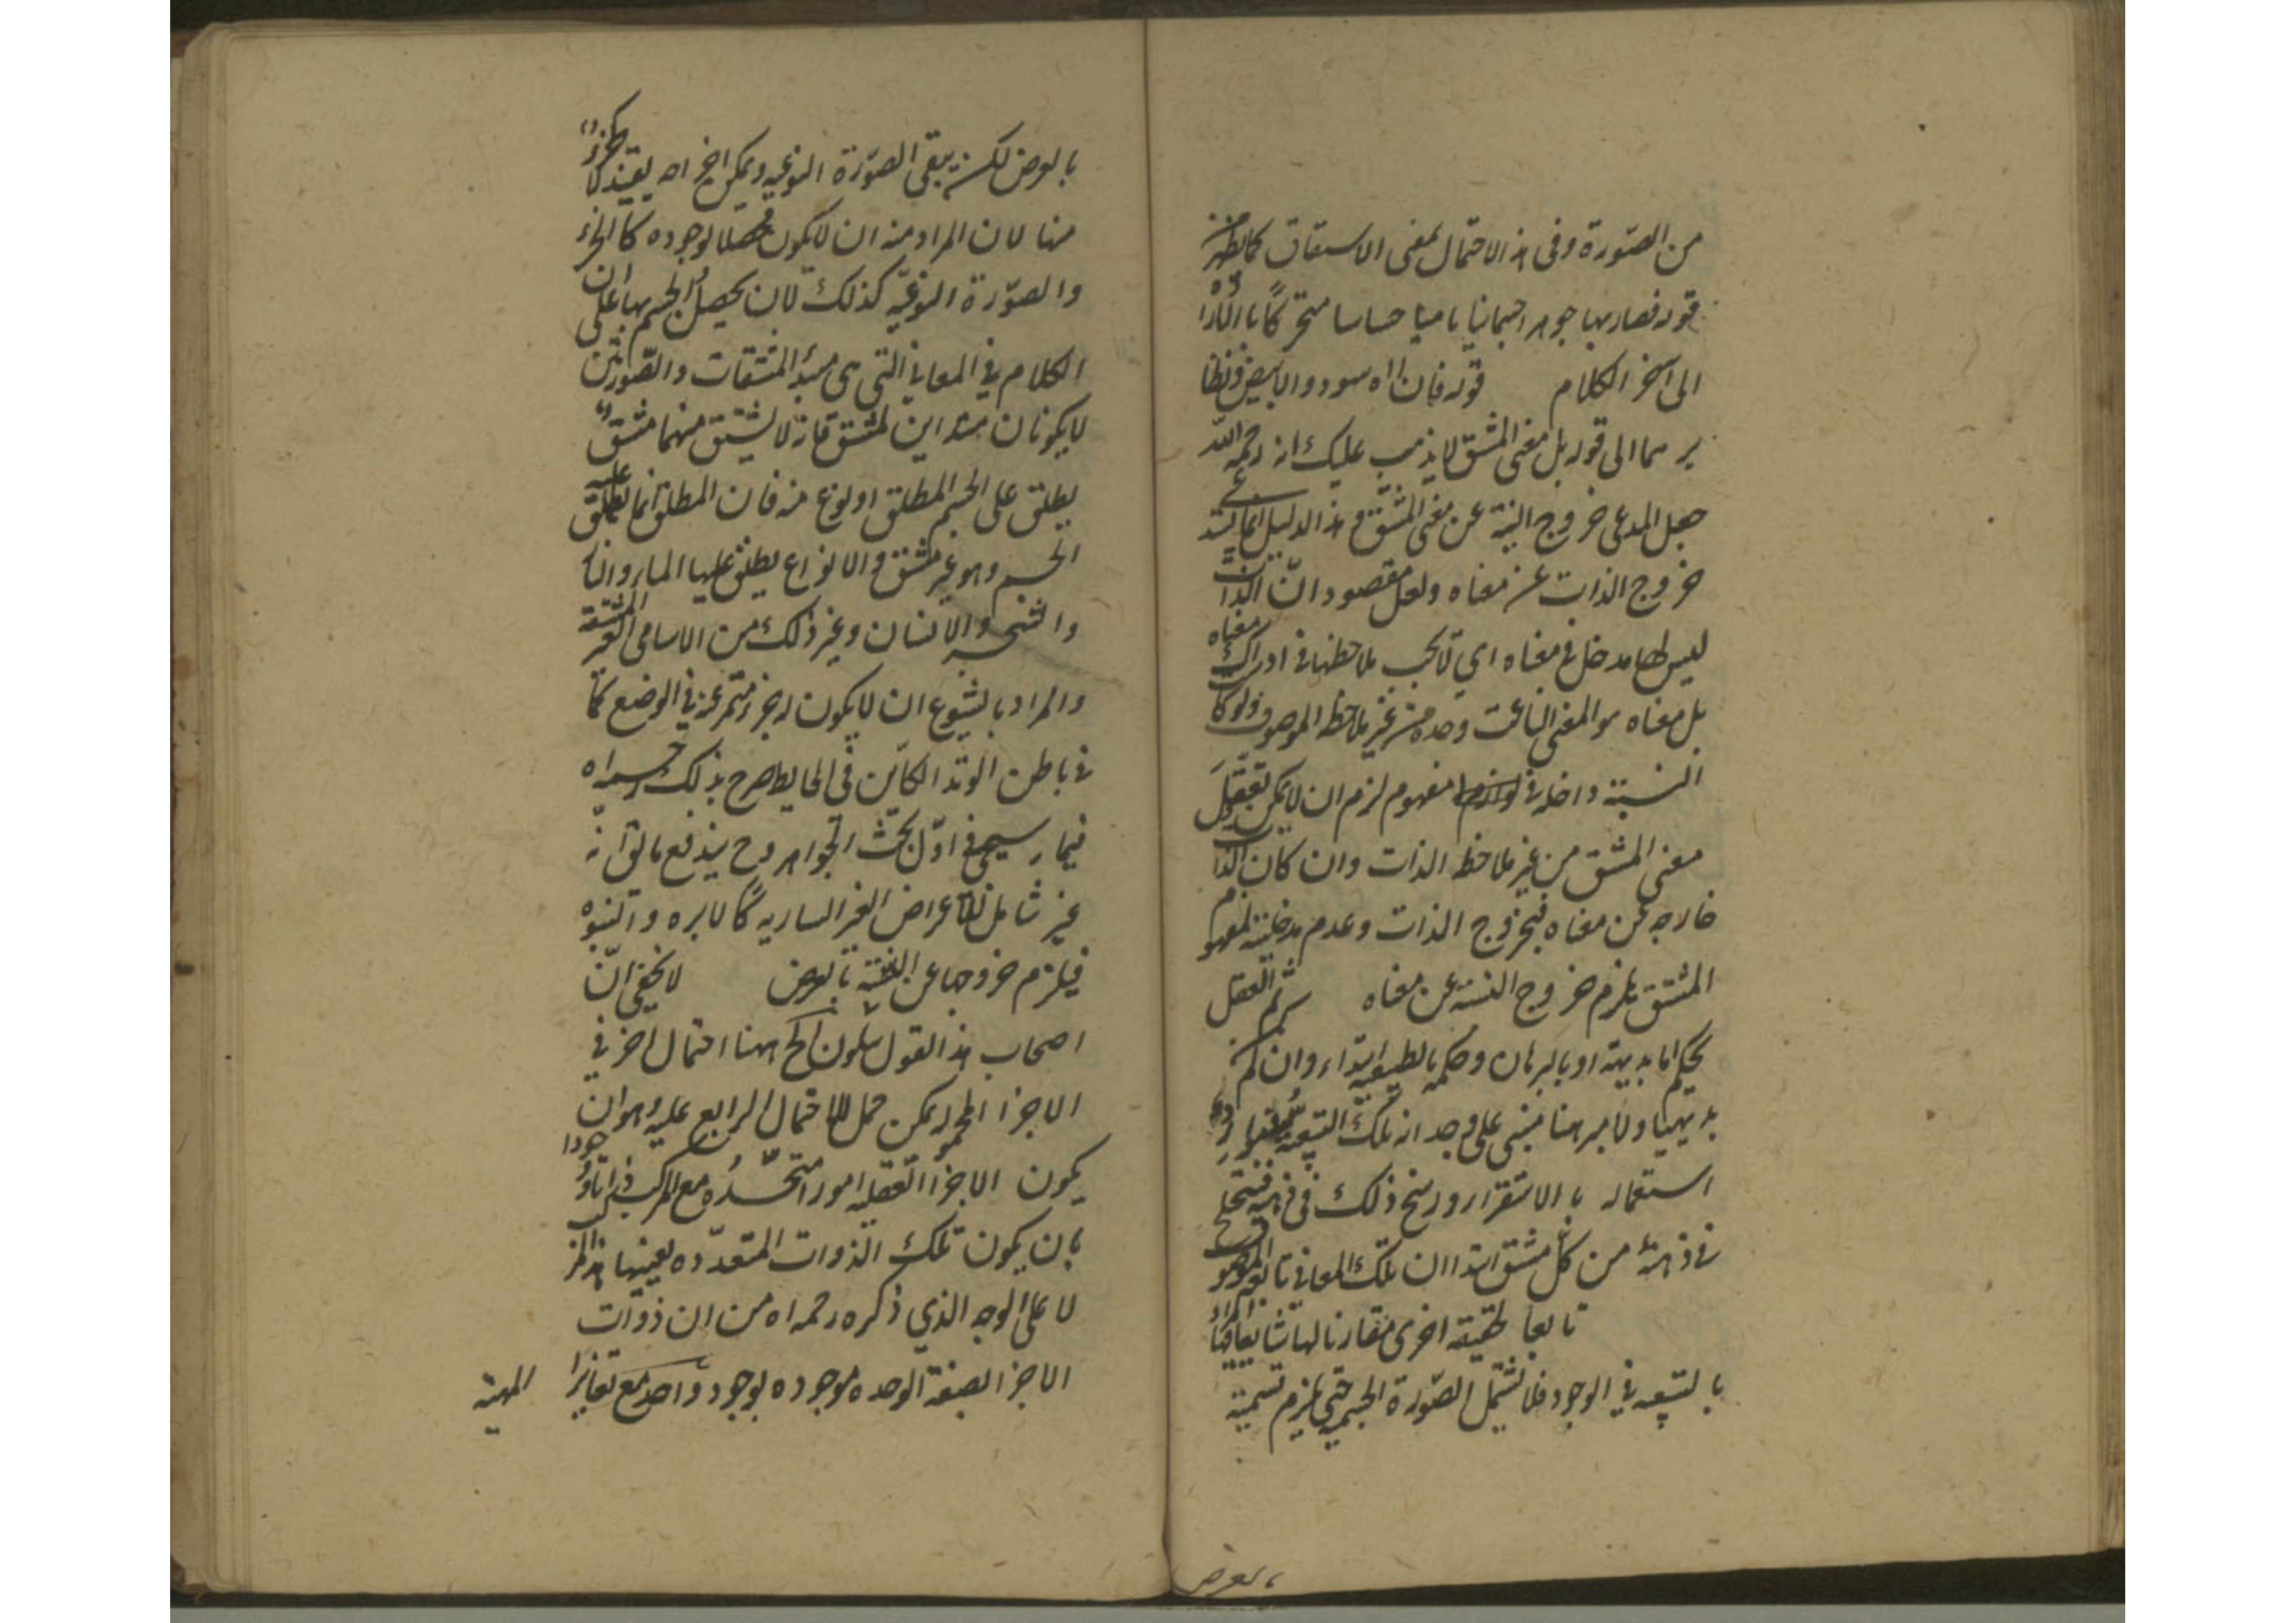 من الصورة وفى هذا الاحتمال بمعنى الاشتقاق كما يظهر من
قوله فصار بها جوهرا جسمانيا ناميا حساسا متحركا بالارادة
الى آخر الكلام قوله فان الاسود والابيض ونظا
يرهما الى قوله بل معنى المشتق لا يذهب عليك انه رحمه الله
جعل المدعى خروج النسبة عن معنى المشتق وهذا الدليل انما يستدعى
خروج الذات عن معناه ولعل مقصوده ان الذات
ليس لها مدخل فى معناه اى لا يجب ملاحظتها فى ادراك معناه
بل معناه هو المعنى الناعت وحده من غير ملاحظة الموصوف ولو كا
النسبة داخلة فى مفهوم لزم ان لا يمكن تعقل
معنى المشتق من غير ملاحظة الذات وان كان الذات
خارجه عن معناه فبخروج الذات وعدم مدخليته لمفهوم
المشتق يلزم خروج النسبة عن معناه ثم العقل
يحكم اما بديهة او بالبرهان وحكمه بالطبيعية ابتداء وان لم
بديهيا ولا مبرهنا مبنى على وجدانه تلك التبعية
استعماله بالاستقرار ورسخ ذلك فى ذهنه
فى ذهنه من كل مشتق ابتدا ان تلك المعانى تابعة الموصوف
تابعا لحقيقة اخرى مقارنا لها شايعا فيها
بالتبعه فى الوجود فلا تشمل الصورة الجسمية حتى يلزم تسمية
بالعرض
بالعرض لكنه يبقى الصورة النوعيه ويمكن اخراجه بقيد
منا لان المراد منه ان لا يكون محصلا لوجوده كالجزء
والصورة النوعيه كذلك لان يحصل الجسم بها على ان
الكلام فى المعانى التى هى مبدأ المشتقات والصورتين
لا يكونان مبدأين لمشتق فانه لا يشتق منهما مشتق
يطلق على الجسم المطلق او لنوع منه فان المطلق انما يطلق عليه
الجسم وهو غير مشتق والانواع يطلق عليها الماء والنا
والشجر والانسان وغير ذلك من الاسامى الغير المشتقة
والمراد بالشيوع ان لا يكون له جزء متميز عنه فى الوضع كما
فى باطن الوتد الكائن فى الحايط صرح بذلك رحمه الله
فيما سيجى فى اول بحث الجواهر وح يندفع ما يق انه
غير شامل للاعراض الغير الساريه كالابوه والبنوه
فيلزم خروجها عن بالعرض لا يخفى ان
اصحاب هذا القول يقولون الخ ههنا احتمال اخر فى
الاجزا المحموله يمكن حمل الاحتمال الرابع عليه وهو ان
يكون الاجزا العقليه امورا متحده مع المركب ذاتا ووجودا
بان يكون تلك الذوات المتعدده بعينها هذا المركب
لا على الوجه الذى ذكره رحمه الله من ان ذوات
الاجزا بصفة الوحده موجوده بوجود واحد مع تغاير
المهية